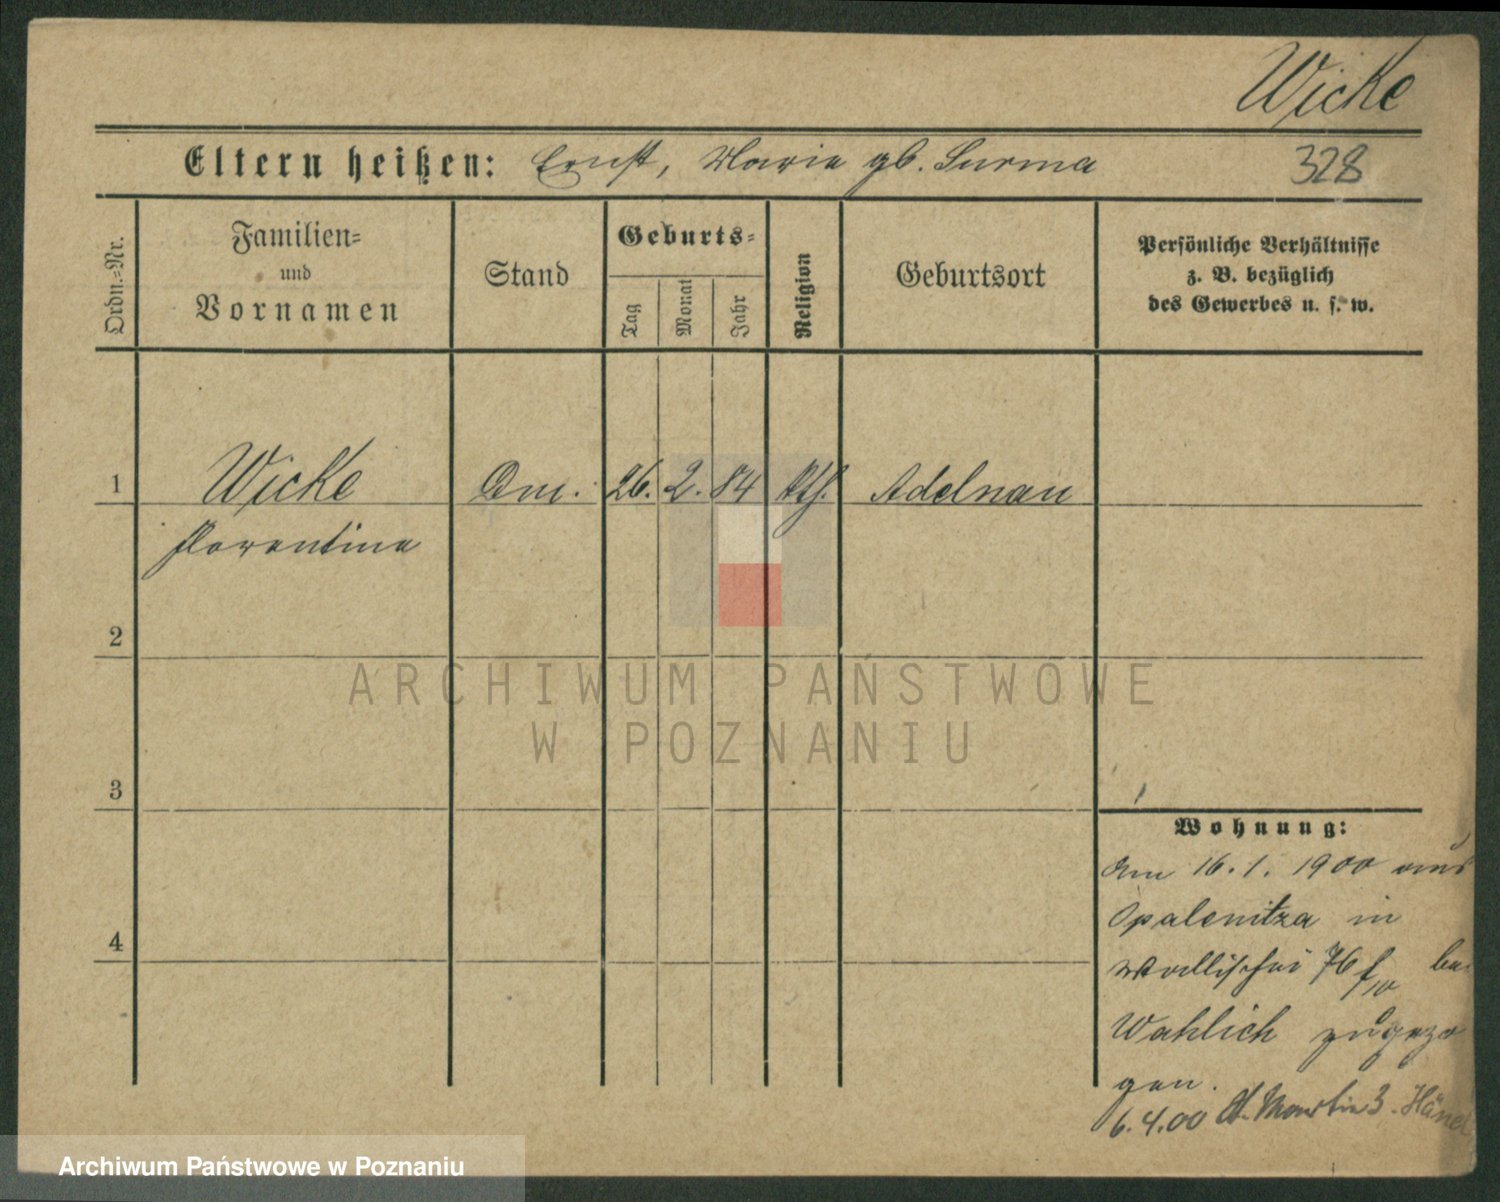 Wicke
Eltern heißen: Ernst, Marie gb. Surma 328
Ordn.-Nr.
Familien-
und
Vornamen
Stand
Geburts-
Tag
Monat
Jahr
Religion
Geburtsort
Persönliche Verhältnisse
z. B. bezüglich
des Gewerbes u. s. w.
1 Wicke 26. 2. 84 Kth. Adelnau
Florentine
2
3
4
Wohnung:
Am 16. 1. 1900 aus
Opalenitza in
Wallischei 76 bei
Wahlich zugezo
gen.
6.4.00 St. Martin 3.
ARCHIWUM PAŃSTWOWE
W POZNANIU
Archiwum Państwowe w Poznaniu